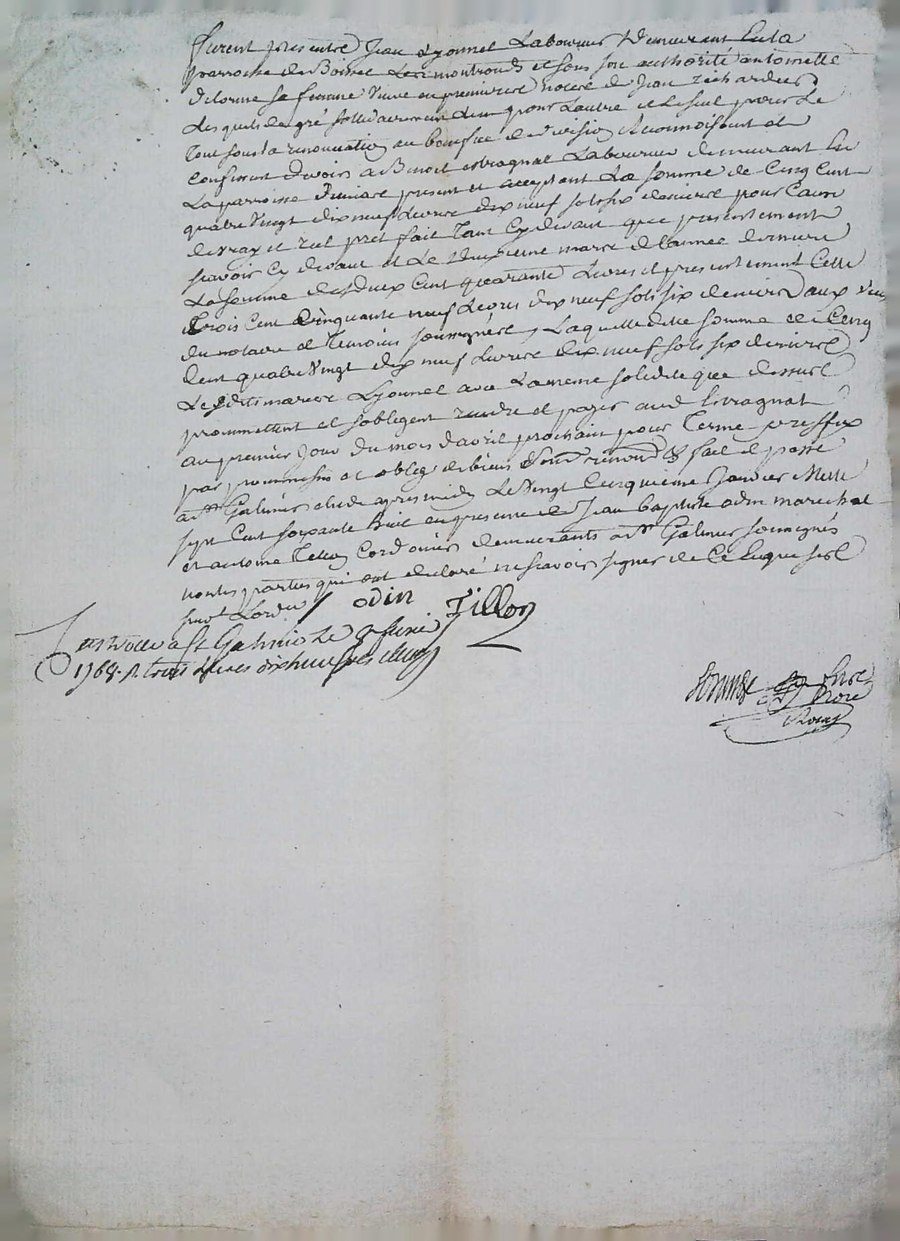 furent presentes Jean Lyonnet Laboureur demeurant en la
parroisse de Boisset Les montrond et sous son authorité antoinette
delorme sa femme veuve en premiere noces de Jean
Lesquels de gré solidairement L'un pour Lautre et le seul pour Le
Tout sous la renonciation au benefice de division reconnoissent et
confessent devoir a Benoit estragnat Laboureur demeurant en
La parroisse present et acceptant La somme de Cinq Cent
quatre vingt dix neuf Livres dix neuf sols six deniers pour Cause
de vray et reel pret fait Tant Cy devant que presentement
scavoir Cy devant et Le mars de l'année derniere
La somme de deux Cent quarante Livres et presentement Celle
Trois Cent Cinquante neuf Livres dix neuf sols six deniers aux yeux
du notaire et Temoins soussignés, Laquelle ditte somme de Cinq
Cent quatre vingt dix neuf Livres dix neuf sols six deniers
Les dits maries Lyonnet avec La meme solidité que dessus
promettent et sobligent rendre et payer aud estragnat
au premier Jour du mois d'avril prochain pour Terme prefix
par promesses et oblig de biens fait et passé
a St Galmier etude apres midy Le vingt Cinquieme Janvier Mille
sept Cent soixante huit en presence de Jean baptiste odin marechal
et antoine Cordonier demeurants a St Galmier soussignés
non les parties qui ont declaré ne scavoir signer de Ce Enquises
odin Tillon
Controllé a St Galmier Le
1768. R trois Livres dix huit sols